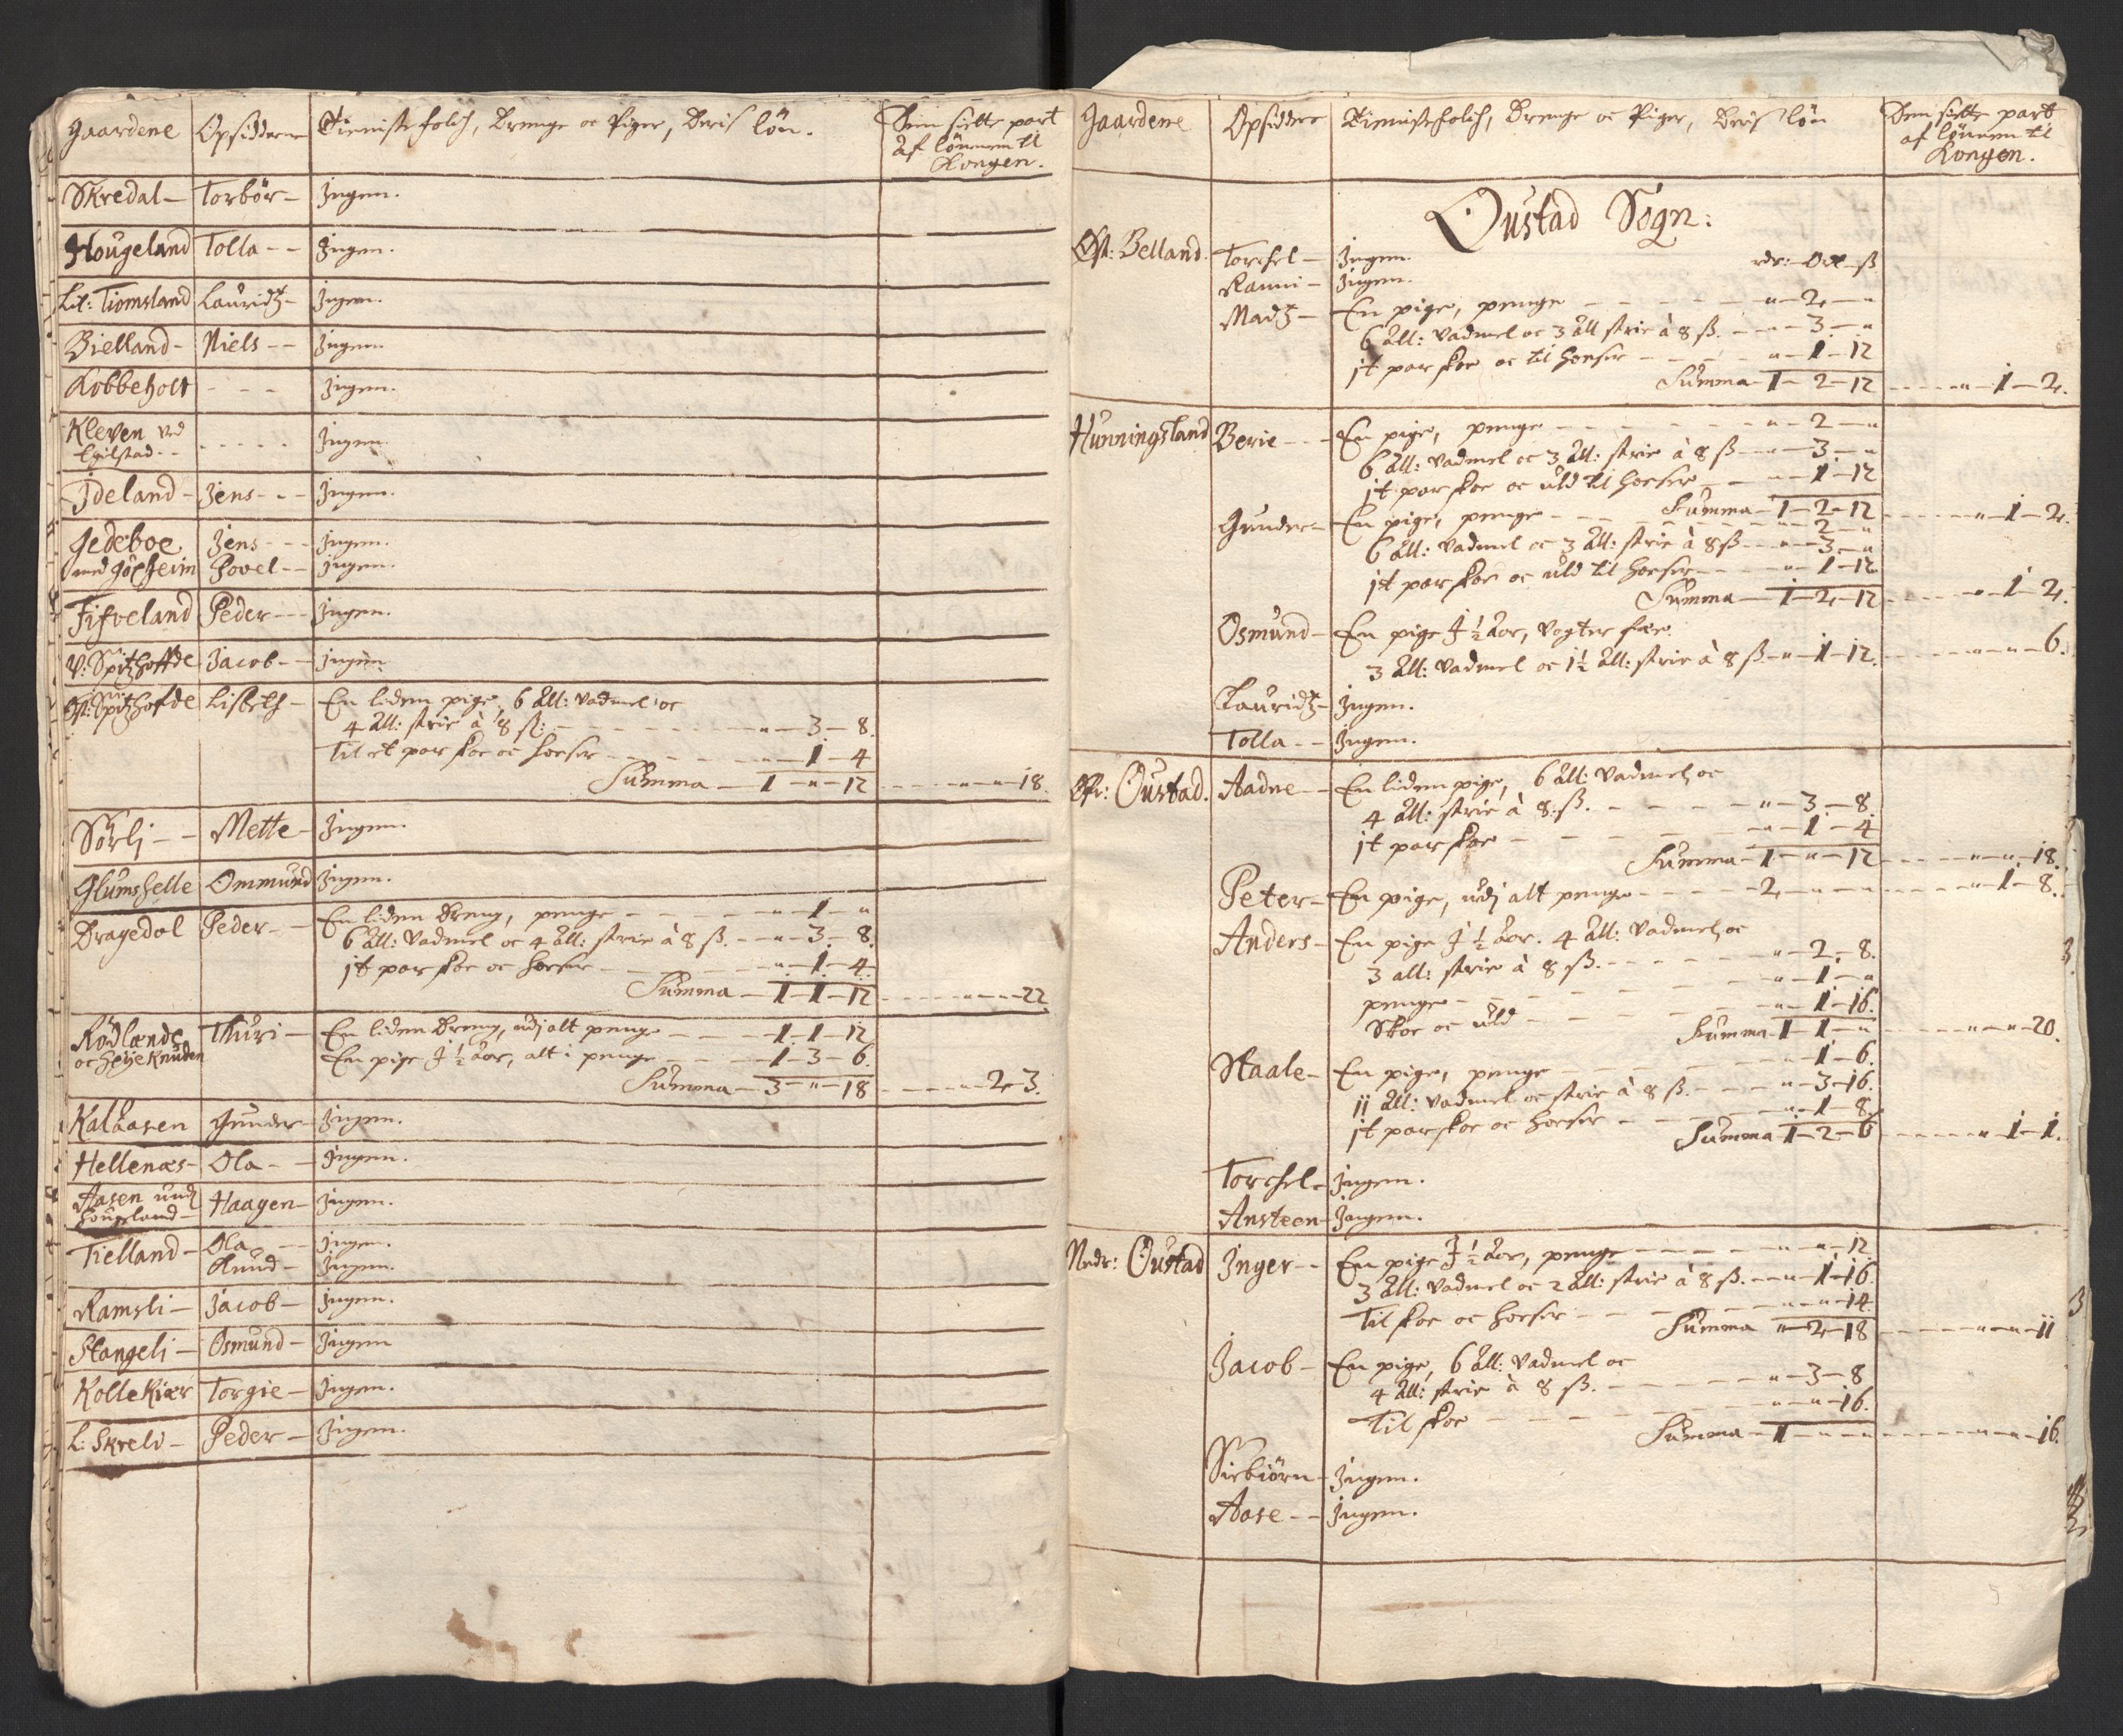 Gaardene Opsiddere Tieniste folch, Drenge oc Piger, Deris lön. Den siette part
af lönnen til
Kongen.
Skredal – Torbör – Ingen.
Hougeland Tolla – – Ingen.
Lil: Tiomsland Lauridtz – Ingen.
Bielland – Niels – – Ingen
Kobbeholt – – – Ingen.
Kleven ved
Egilstad – – – – – – Ingen
Ideland – Jens – – – Ingen.
Gedeboe Jens – – – Ingen.
med Povel – – Ingen.
Fifveland Peder – – – Ingen.
V: Spitzhoffde Jacob – – Ingen
Øst: Spitzhofde Lisbeth – En liden pige, 6 all: Vadmel oc
4 all: strie à 8 ß: – – – – – „ – 3 – 8.
Til et par skoe oc hoeser – – – – „ – 1 – 4
Summa – 1 – „ – 12 – – – – „ – „ – 18.
Sörli – – Mette – Ingen.
Glumshelle Ommund Ingen.
Dragedal Peder – – En liden Dreng, penge – – – – – „ – 1 – „
6 all: Vadmel oc 4 all: strie à 8 ß. – – „ – 3 – 8.
it par skoe oc hoeser – – – – – „ – 1 – 4.
Summa – 1 – 1 – 12 – – – – „ – „ – 22
Rödlands Thuri – En liden Dreng, udj alt penge – – – 1 – 1 – 12
oc Heije Knuden En pige J ½ Aar, alt i penge – – – 1 – 3 – 6
Summa – 3 – „ – 18 – – – – „ – 2 – 3.
Kalaasen Gunder – Ingen.
Hellenæs – Ola – – Ingen.
Aasen und
Hougeland – Haagen – Ingen.
Tielland – Ola – – Ingen.
Knud – Ingen.
Ramsli – Jacob – Ingen.
Stangeli – Osmund – Ingen
Kollekiær Torgie – Ingen.
L: Skreli – Peder – Ingen.
Gaardene Opsiddere Tienistefolch, Drenge oc Piger, Deris lön Den siette part
af lönnen til
Kongen.
Oustad Sogn:
Øst: Belland. Torchel – Ingen. rdr: – Ort – ß
Ranni – Ingen.
Madtz – En pige, penge – – – – – – „ – 2 – „
6 all: Vadmel oc 3 all strie à 8 ß. – – „ – 3 – „
it par skoe oc til hoeser – – – – „ – 1 – 12
Summa – 1 – 2 – 12 – – – – „ – 1 – 2.
Hunningsland Berie – – – En pige, penge – – – – – – „ – 2 – „
6 all: Vadmel oc 3 all: strie à 8 ß – – „ – 3 – „
it par skoe oc uld til hoeser – – „ – 1 – 12
Summa – 1 – 2 – 12 – – – – „ – 1 – 2.
Gunder – En pige, penge – – – – – – „ – 2 – „
6 all: Vadmel oc 3 all: strie à 8 ß – – „ – 3 – „
it par skoe oc uld til hoeser – – – „ – 1 – 12
Summa – 1 – 2 – 12 – – – – „ – 1 – 2.
Osmund – En pige J ½ Aar, Vogter fæe
3 all: Vadmel oc 1½ all: strie à 8 ß – „ – 1 – 12. – – – – „ – „ – 6.
Lauridtz – Ingen.
Tolla – – Ingen.
Øfr: Oustad. Aadne – – En liden pige, 6 all: Vadmel oc
4 all: strie à 8: ß. – – – – „ – 3 – 8.
it par skoe – – – – – – „ – 1 – 4
Summa – 1 – „ – 12 – – – – „ – „ – 18.
Peter – En pige, udj alt penge – – – – 2 – „ – „ – – – – „ – 1 – 8.
Anders – En pige J ½ Aar. 4 all: Vadmel, oc
3 all: strie à 8 ß. – – – – – „ – 2 – 8.
penge – – – – – – – – „ – 1 – „
Skoe oc uld – – – – – – „ – 1 – 16.
Summa – 1 – 1 – „ – – – – „ – „ – 20.
Staale – En pige, penge – – – – – – „ – 1 – 6.
11 all: Vadmel oc strie à 8 ß. – – – „ – 3 – 16.
it par skoe oc hoeser – – – – „ – 1 – 8.
Summa – 1 – 2 – 6 – – – – „ – 1 – 1.
Torchel – Ingen.
Ansteen – Ingen.
Nedr: Oustad Inger – – En pige J ½ Aar, penge – – – – „ – „ – 12
3 all: Vadmel oc 2 all: strie à 8 ß. – – „ – 1 – 16.
Til skoe oc hoeser – – – – – „ – „ – 14.
Summa „ – 2 – 18 – – – – „ – „ – 11
Jacob – En pige, 6 all: Vadmel oc
4 all: strie à 8 ß. – – – – – „ – 3 – 8
Til skoe – – – – – – – „ – „ – 16.
Summa – 1 – „ – „ – – – – „ – „ – 16.
Sirbiörn – Ingen.
Aase – – Ingen.